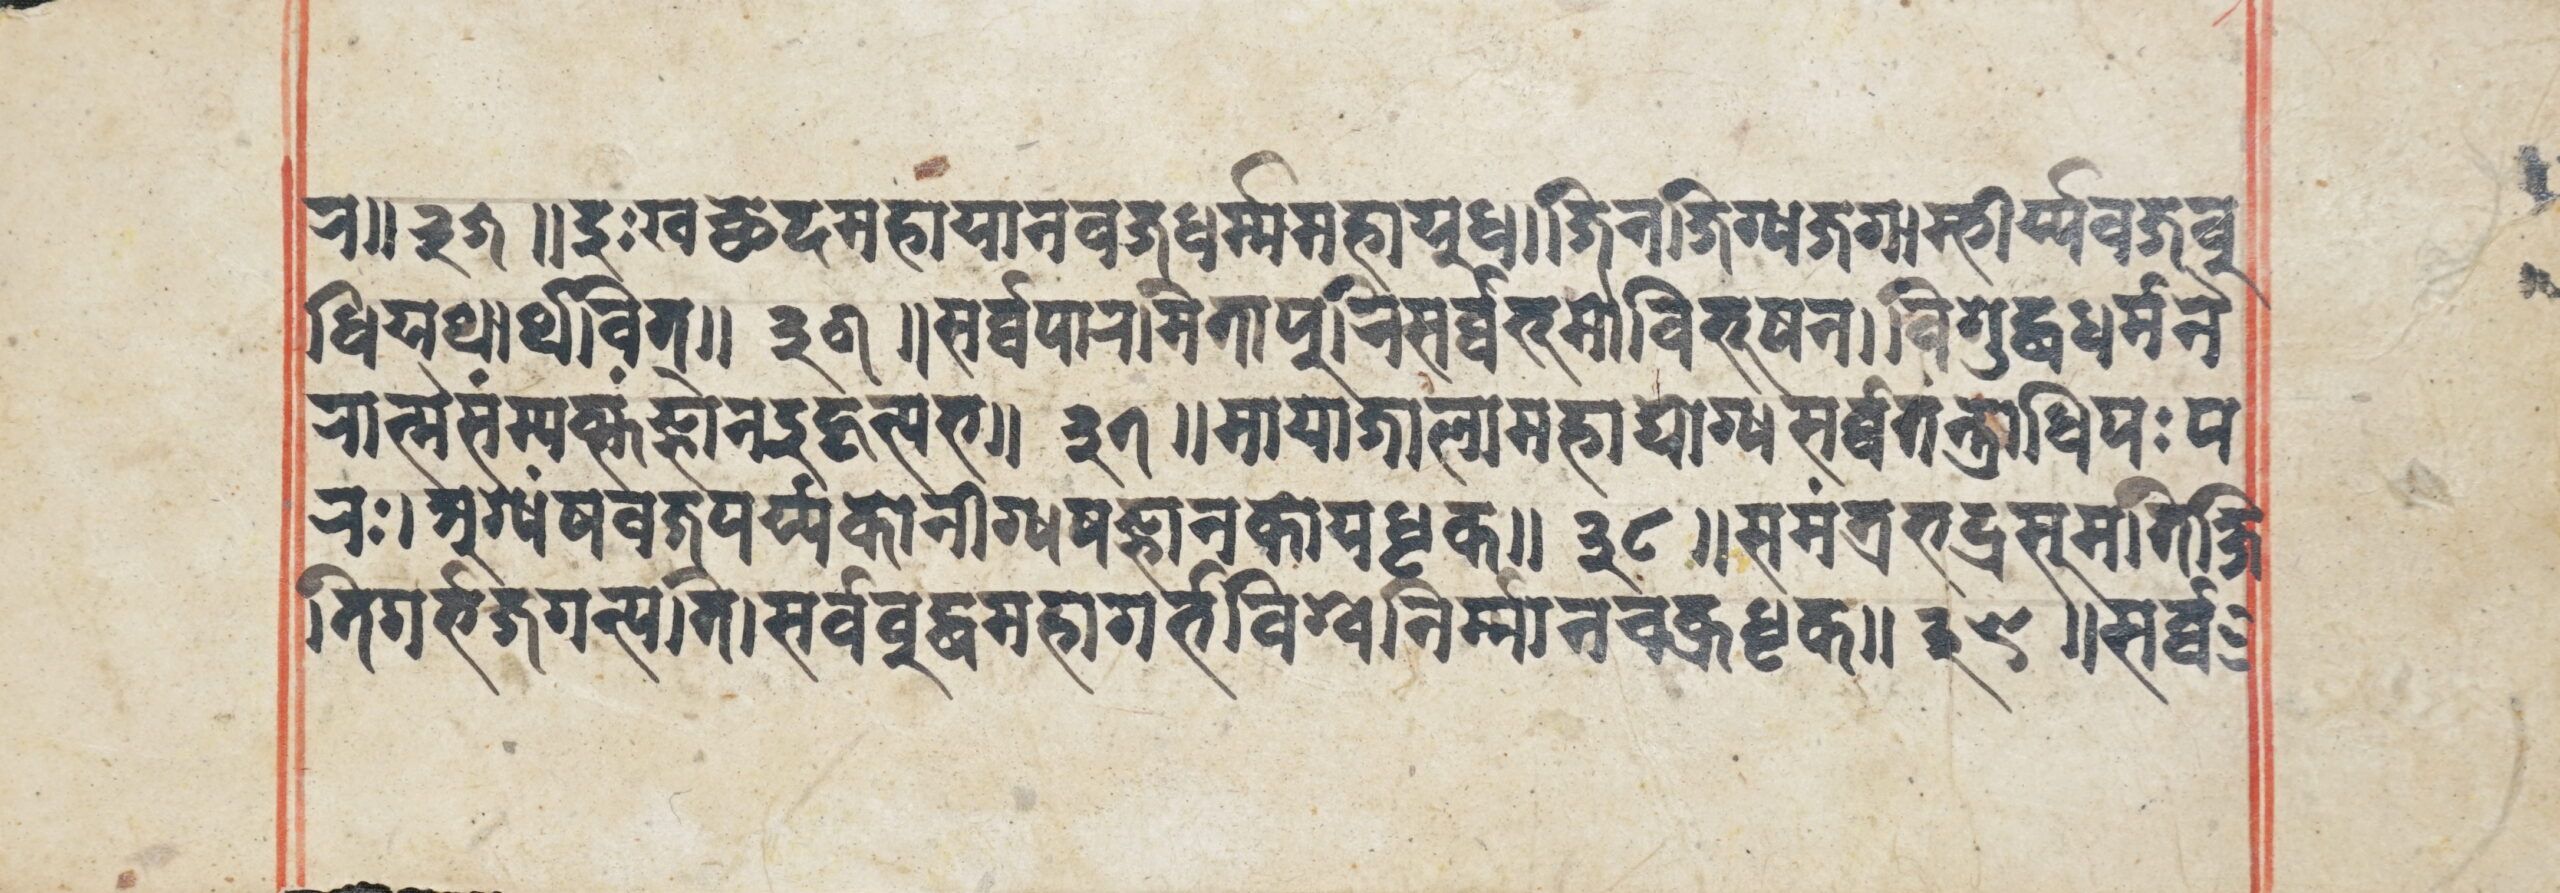 र॥ ३५ ॥दुःखच्छेदमहायानवज्रधर्म्ममहायुध।जिनजिग्वज्रगाम्भीर्य्यवज्रबु
धियथार्थवित्॥ ३६ ॥सर्व्वपारमितापुरिसर्व्वभूमीविभूषन।विशुद्धधर्मनै
रात्मसंम्यक्कंज्ञानदुहृत्प्रभ॥ ३७ ॥मायाजालामहाद्योगसर्व्वतंन्त्राधिपःप
रः।अशेषंषवज्रपर्य्यकोनीशेषज्ञानकायधृक॥ ३८ ॥समंत्रभद्रसुमतिक्षि
तिगर्भजगत्पति।सर्वबुद्धमहागर्भविश्वेनिर्म्मानचक्रधृक॥ ३९ ॥सर्व्व